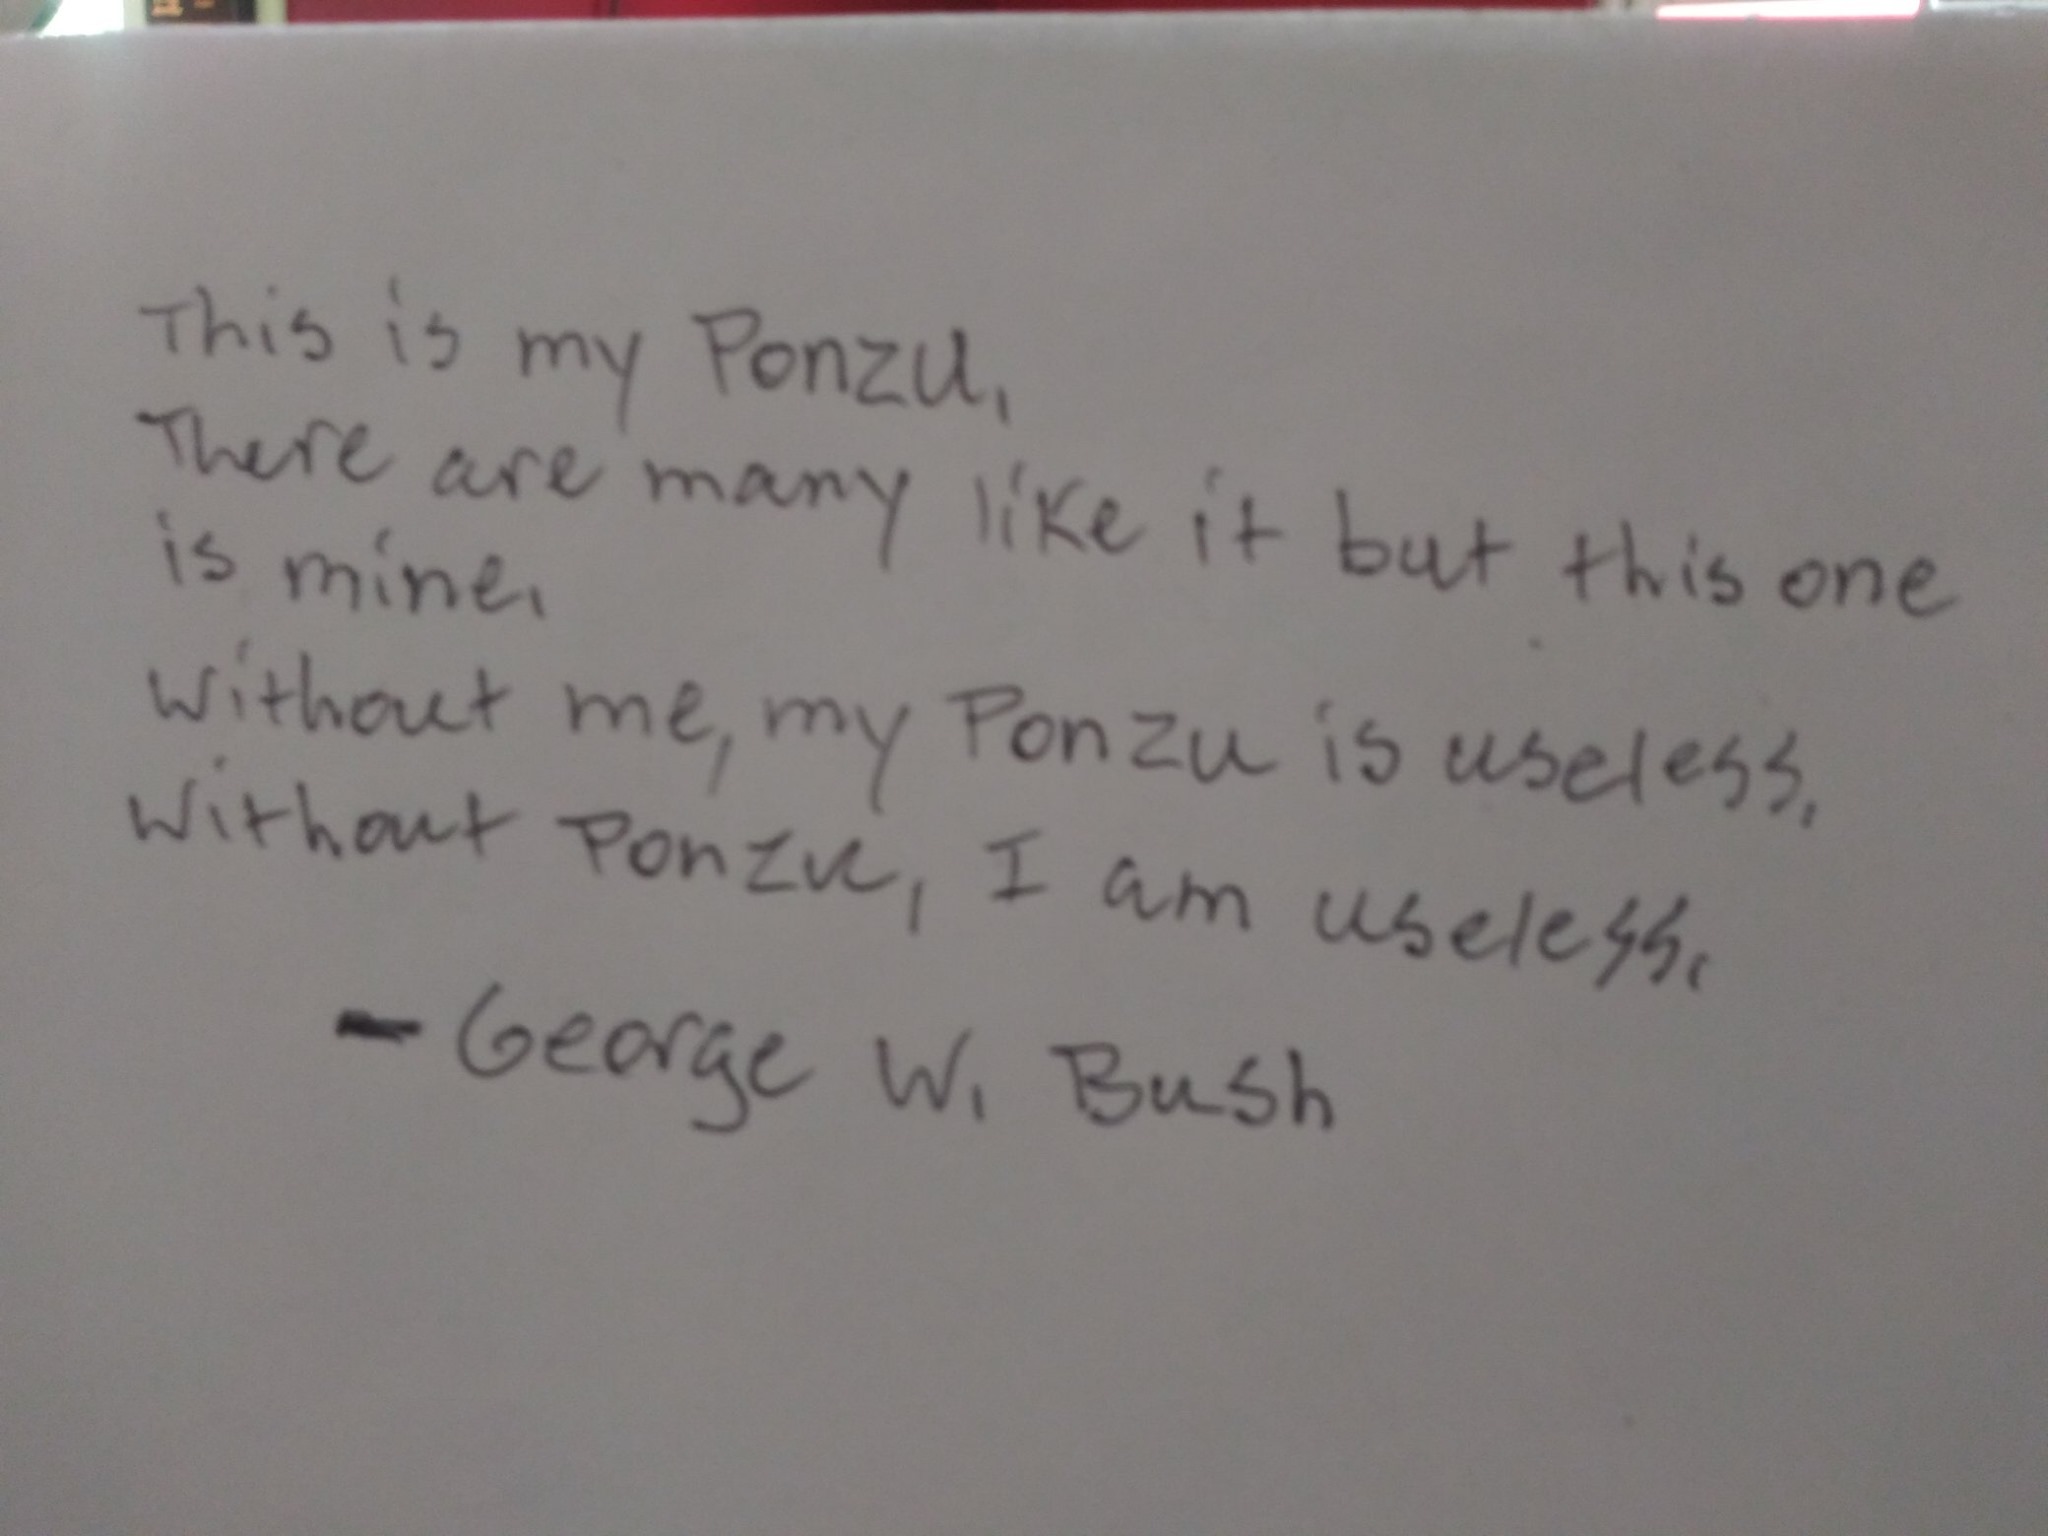 This is my Ponzu.
There are many like it but this one
is mine.
Without me, my Ponzu is useless.
Without Ponzu, I am useless.
- George W. Bush